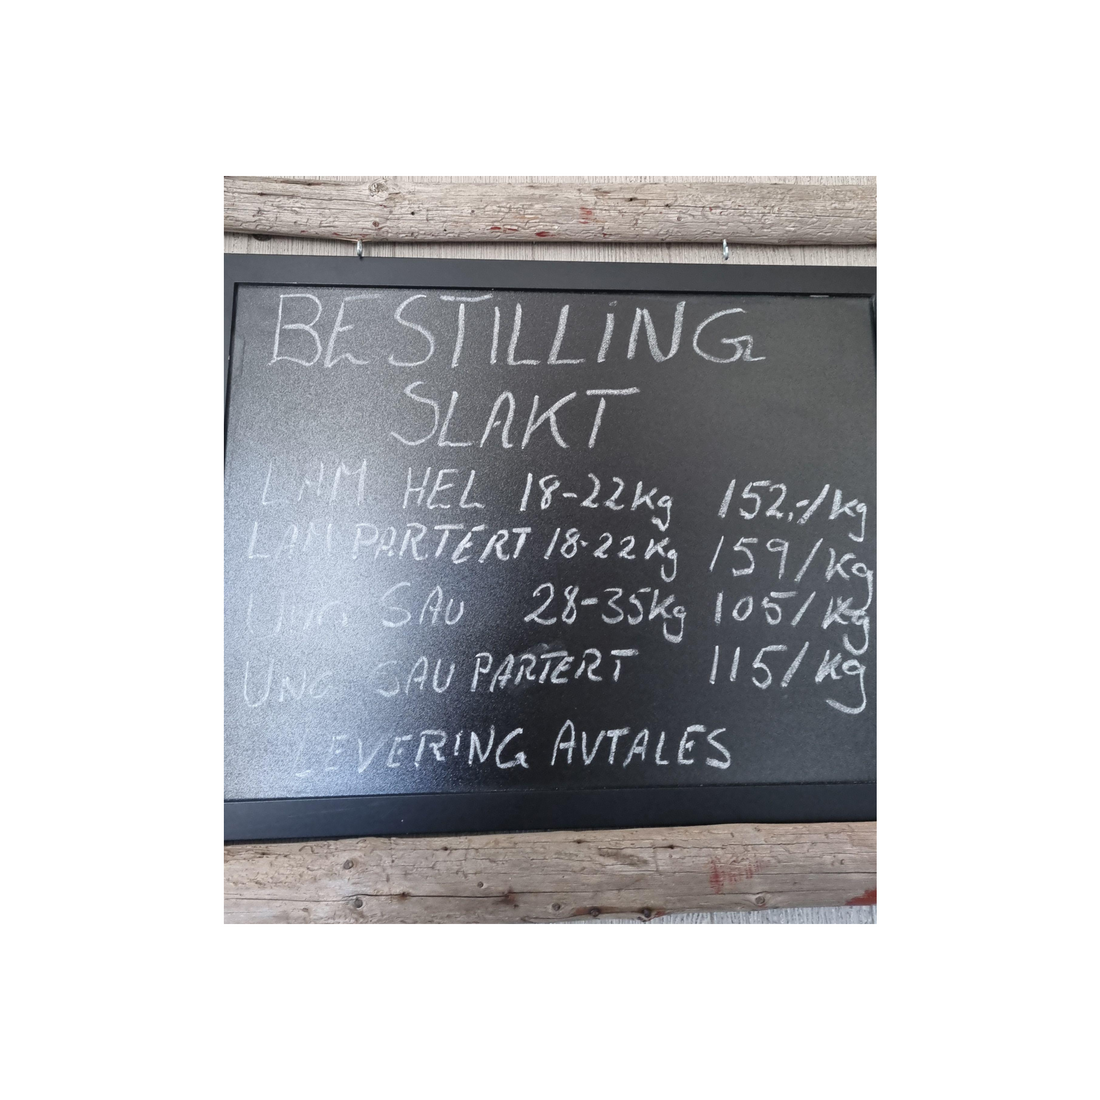 BESTILLING
SLAKT
LAM HEL 18-22kg 152,-/kg
LAM PARTERT 18-22kg 159/kg
UNG SAU 28-35kg 105/kg
UNG SAU PARTERT 115/kg
LEVERING AVTALES